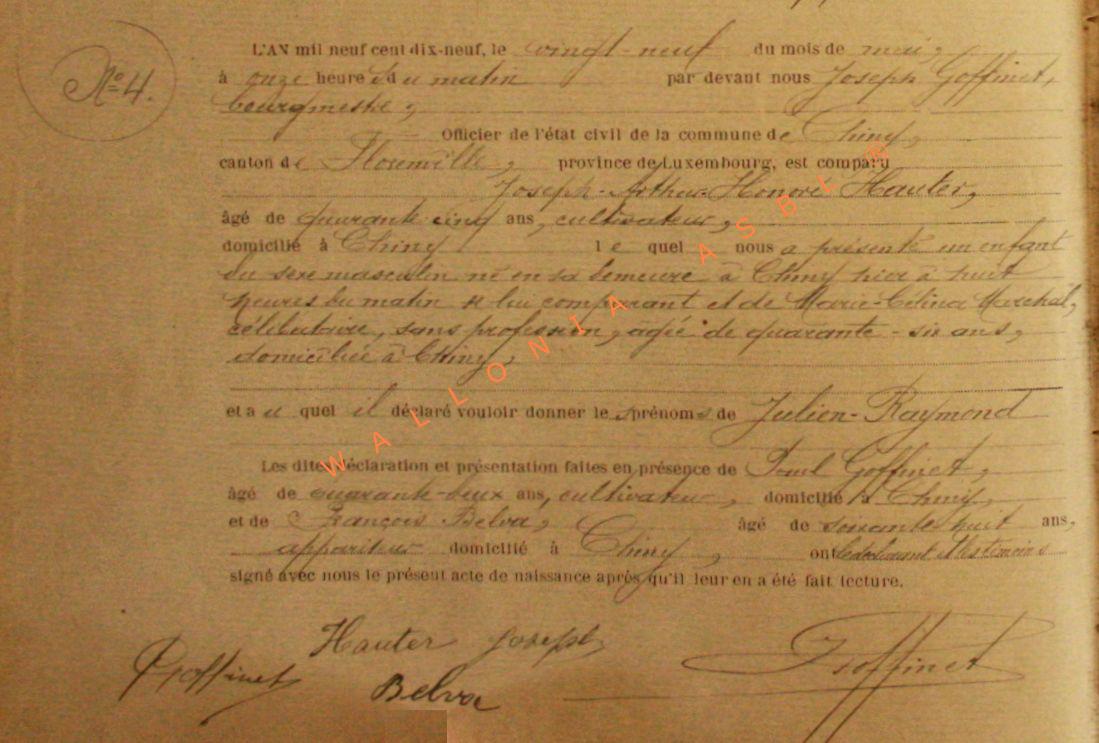 L'AN mil neuf cent dix-neuf, le vingt-neuf du mois de mai,
N° 4.
à onze heures du matin par devant nous Joseph Goffinet,
bourgmestre,
Officier de l'état civil de la commune de Chiny,
canton de Florenville, province de Luxembourg, est comparu
Joseph-Arthur-Honoré Hauter,
âgé de quarante cinq ans, cultivateur,
domicilié à Chiny lequel nous a présenté un enfant
du sexe masculin né en sa demeure à Chiny hier à huit
heures du matin de lui comparant et de Marie-Célina Maréchal,
célibataire, sans profession, agée de quarante-six ans,
domiciliée à Chiny,
et auquel il déclaré vouloir donner les prénoms de Julien-Raymond
Les dites déclaration et présentation faites en présence de Paul Goffinet,
âgé de quarante-deux ans, cultivateur, domicilié à Chiny,
et de François Belva, âgé de soixante huit ans,
appariteur domicilié à Chiny, ont le déclarant et les témoins
signé avec nous le présent acte de naissance après qu'il leur en a été fait lecture.
Hauter Joseph
PGoffinet JGoffinet
Belva
WALLONIA ASBL ®